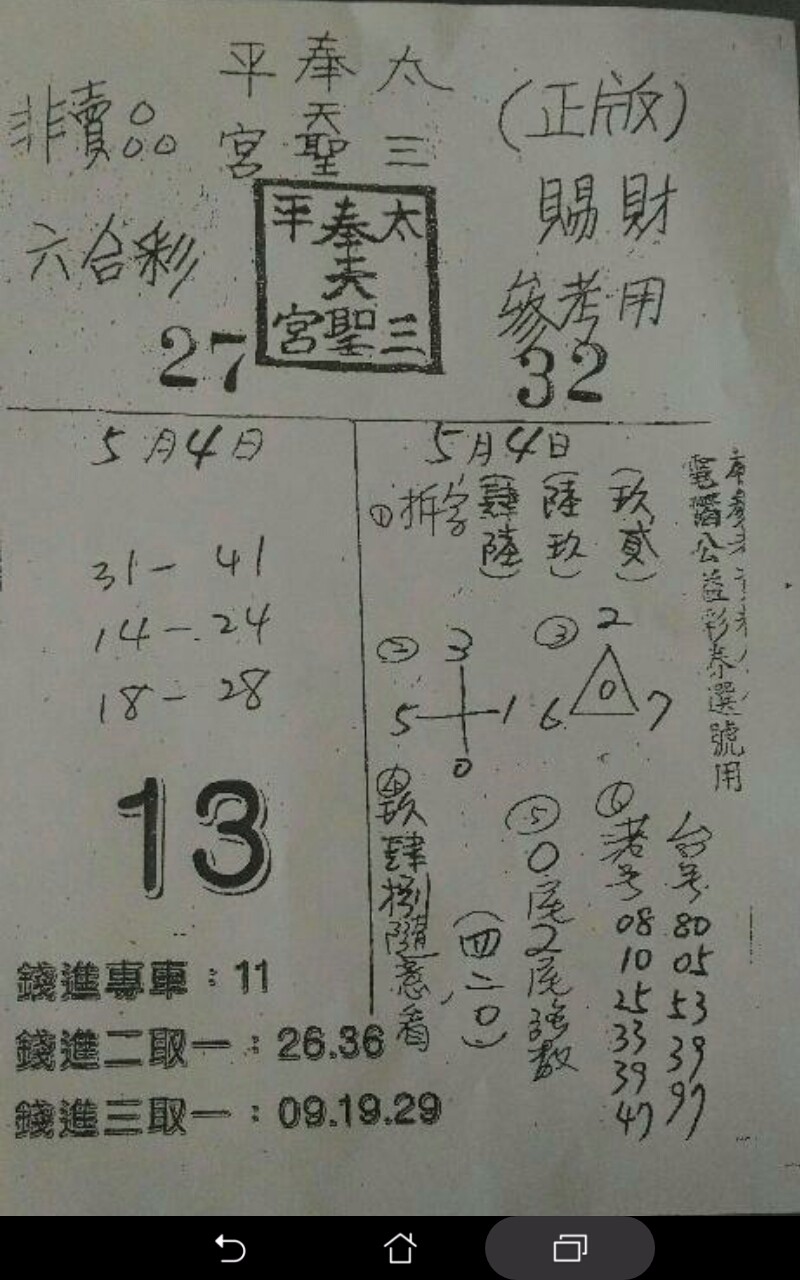 太三
奉天聖
平宮
非賣品
(正版)
賜財
參考用
六合彩
太三
奉天聖
平宮
27
32
5月4日
31-41
14-24
18-28
13
錢進專車:11
錢進二取一:26.36
錢進三取一:09.19.29
5月4日
①拆字
(肆陸)
(陸玖)
(玖貳)
② 3
5 1
0
③ 2
0
6 7
④玖肆捌隨意看
⑤0尾2尾強數
(四二0)
⑥
港号
08
10
25
33
39
47
台号
80
05
53
39
97
電腦公益彩券選號用